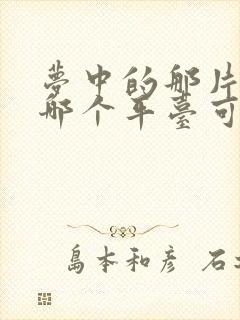 夢中的那片
那个平臺可
島本和彦 石